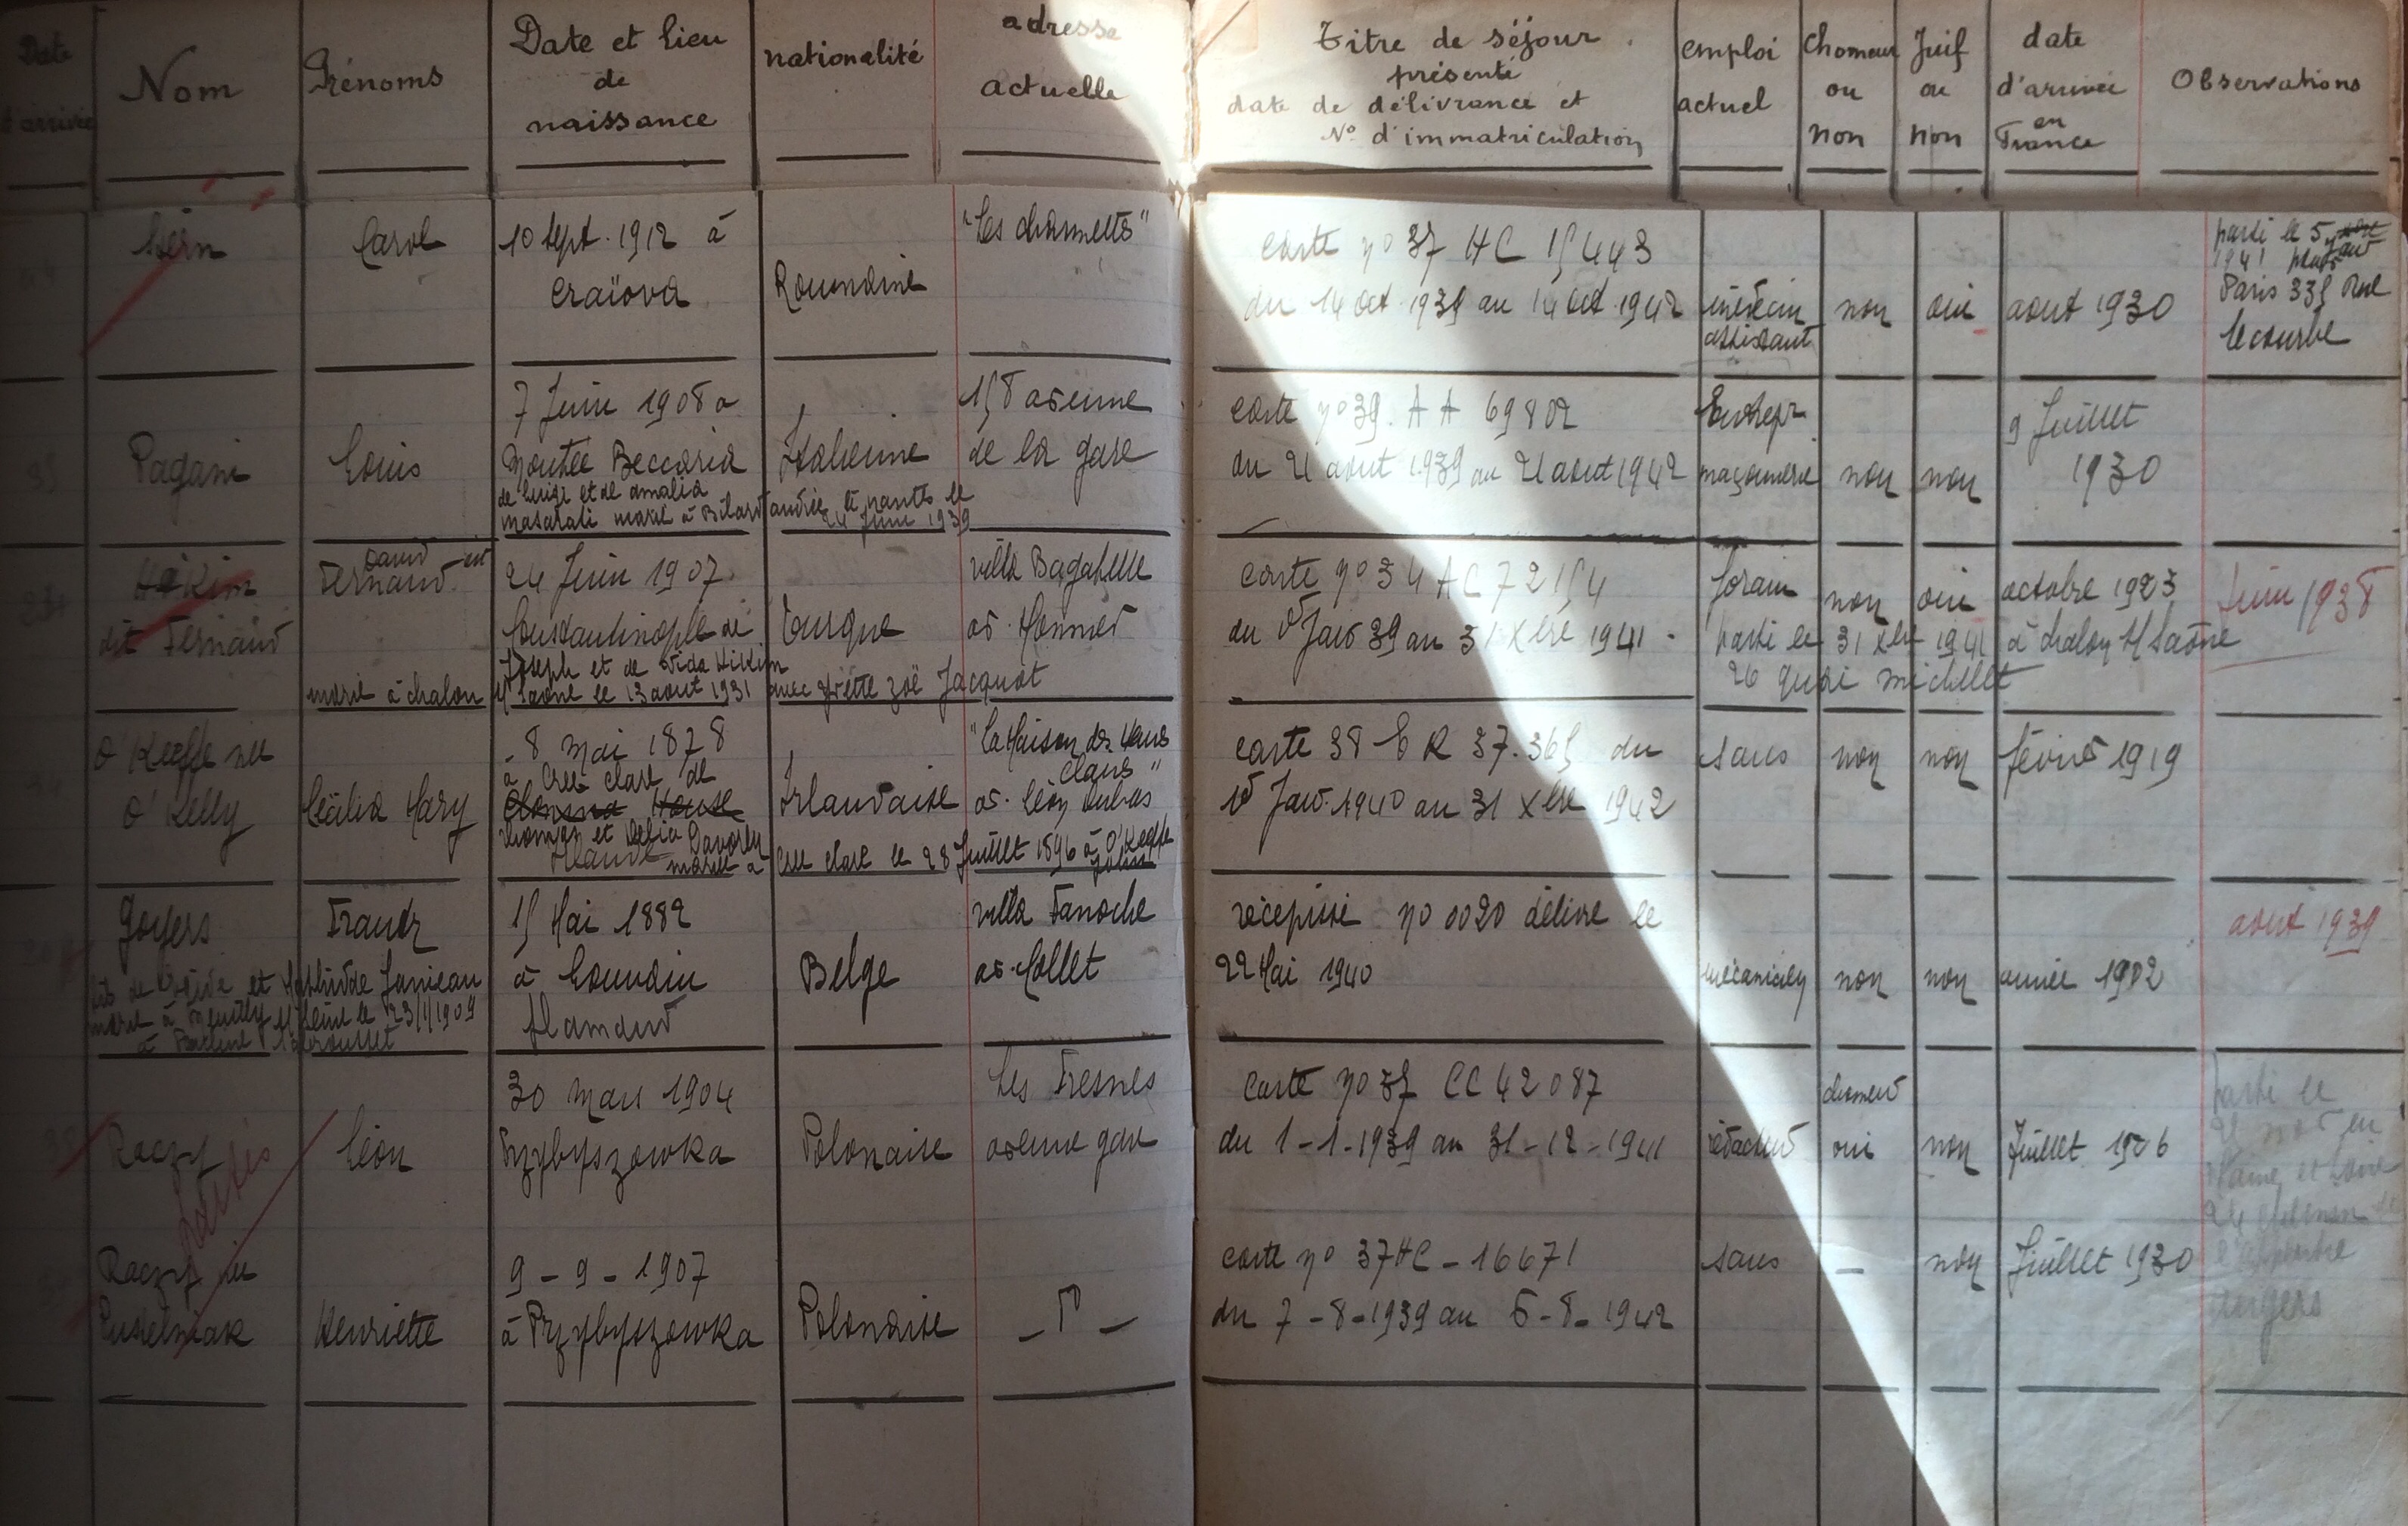 Date
d'arrivée
Nom
Prénoms
Date et lieu
de
naissance
nationalité
adresse
actuelle
Titre de séjour
présenté
date de délivrance et
N° d'immatriculation
emploi
actuel
chomeur
ou
non
Juif
ou
non
date
d'arrivée
en
France
Observations
Carol
10 Sept. 1912 à
Craïova
Roumaine
"Les charmettes"
carte n° 37 HC 15443
du 14 oct. 1939 au 14 oct. 1942
médecin
assistant
non
oui
aout 1930
parti le 5
1941
Paris 335 Rue
Lecourbe
Pagani
Louis
7 Juin 1908 a
Beccaria
de Luigi et de Amalia
marié à
Andrée à nantes le
24 Juin 1939
Italienne
158 avenue
de la gare
carte n° 39. AA 69802
du 21 aout 1939 au 21 aout 1942
Entrepr
maçonnerie
non
non
9 Juillet
1930
Hakim
dit Fernand
David dit
Fernand
24 Juin 1907
Constantinople de
Joseph et de Vida
marié à chalon s/ Saone le 13 aout 1931 avec Yvette Zoë Jacquot
Turque
villa Bagatelle
av.
carte n° 34 AC 72154
du 1er Janv 39 au 31 Xbre 1941 -
forain
non
oui
octobre 1923
parti le 31 Xbre 1941 à chalon s/ Saône
26 quai michelet
Juin 1938
O'Keeffe née
O'Kelly
Cécilia Mary
- 8 mai 1878
à Cree clare de
House
Thomas et Delia Davoren
Irlande mariée à Cree clare le 28 Juillet 1896 à O'Keeffe
John
Irlandaise
"La Maison des
claus"
av. Léon Dubas
carte 38 ER 37.365 du
1er Janv. 1940 au 31 Xbre 1942
sans
non
non
février 1919
Goyers
Frantz
15 Mai 1882
à Louvain
flamand
fils de et Mathilde
marié à Neuilly s/ Seine le 23/1/1909
à
Belge
villa Fanoche
av. Collet
récépissé n° 0020 délivré le
22 Mai 1940
mécanicien
non
non
année 1902
aout 1939
Raczy
Léon
30 mars 1904
Przybyszowka
Polonaise
Les Fresnes
avenue gare
carte n° 37 CC 42087
du 1-1-1939 au 31-12-1941
rédacteur
chomeur
oui
non
Juillet 1926
Parti le
en
Maine et Loire
24
angers
Raczy née
Henriette
9-9-1907
à Przybyszowka
Polonaise
carte n° 37HC-16671
du 7-8-1939 au 6-8-1942
sans
—
non
Juillet 1930